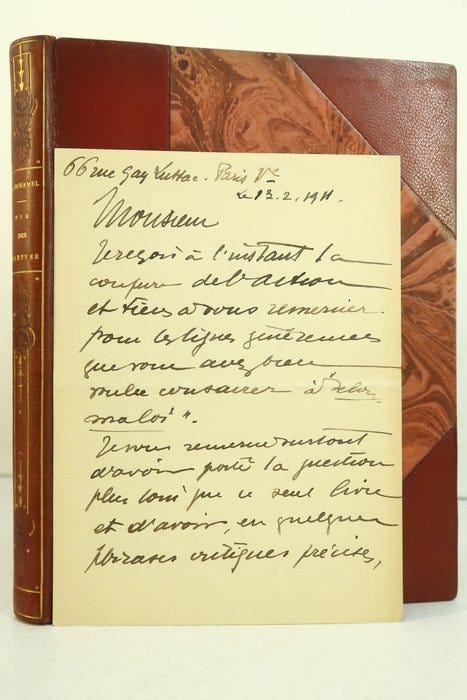 DUHAMEL
VIE
DES
MARTYRS
66 rue Gay Lussac. Paris Ve
Le 13.2.1911.
Monsieur
Je reçois à l'instant la
coupure de l'action
et tiens à vous remercier
pour les lignes généreuses
que vous avez bien
voulu consacrer à "Selon
ma loi".
Je vous remercie surtout
d'avoir porté la question
plus loin que ce seul livre
et d'avoir, en quelques
phrases critiques précises,